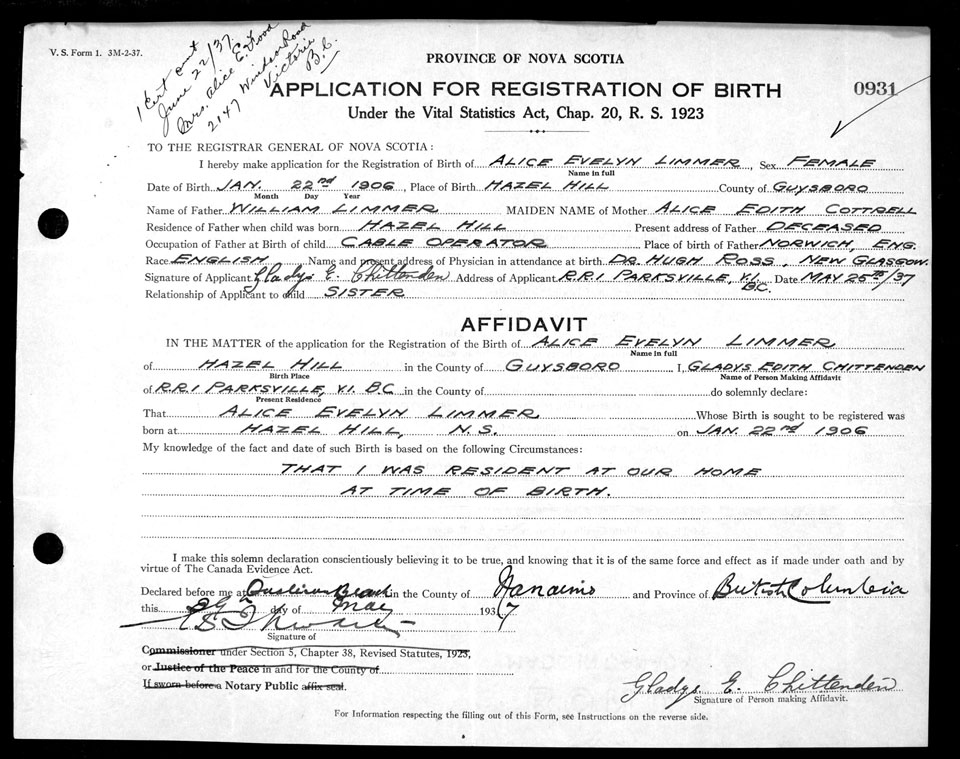 V. S. Form 1. 3M-2-37.
1 Cert sent
June 22/37.
Mrs. Alice E. Flood
2147 Windsor Road
Victoria
B.C.
PROVINCE OF NOVA SCOTIA
APPLICATION FOR REGISTRATION OF BIRTH
0931
Under the Vital Statistics Act, Chap. 20, R. S. 1923
TO THE REGISTRAR GENERAL OF NOVA SCOTIA:
I hereby make application for the Registration of Birth of ALICE EVELYN LIMMER, Sex FEMALE
Name in full
Date of Birth JAN. 22nd 1906, Place of Birth HAZEL HILL County of GUYSBORO
Month Day Year
Name of Father WILLIAM LIMMER MAIDEN NAME of Mother ALICE EDITH COTTRELL
Residence of Father when child was born HAZEL HILL Present address of Father DECEASED
Occupation of Father at Birth of child CABLE OPERATOR Place of birth of Father NORWICH, ENG.
Race ENGLISH Name and present address of Physician in attendance at birth DR. HUGH ROSS, NEW GLASGOW.
Signature of Applicant Gladys E. Chittenden Address of Applicant R.R.1 PARKSVILLE, V.I. B.C. Date MAY 25th/37
Relationship of Applicant to child SISTER
AFFIDAVIT
IN THE MATTER of the application for the Registration of the Birth of ALICE EVELYN LIMMER
Name in full
of HAZEL HILL in the County of GUYSBORO I, GLADYS EDITH CHITTENDEN
Birth Place Name of Person Making Affidavit
of R.R.1 PARKSVILLE, V.I. BC in the County of do solemnly declare:
Present Residence
That ALICE EVELYN LIMMER Whose Birth is sought to be registered was
born at HAZEL HILL, N.S. on JAN. 22nd 1906
My knowledge of the fact and date of such Birth is based on the following Circumstances:
THAT I WAS RESIDENT AT OUR HOME
AT TIME OF BIRTH.
I make this solemn declaration conscientiously believing it to be true, and knowing that it is of the same force and effect as if made under oath and by
virtue of The Canada Evidence Act.
Declared before me at Qualicum Beach in the County of Nanaimo and Province of British Columbia
this day of May 1937
Signature of
Commissioner under Section 5, Chapter 38, Revised Statutes, 1923,
or Justice of the Peace in and for the County of
If sworn before a Notary Public affix seal.
Gladys E. Chittenden
Signature of Person making Affidavit.
For Information respecting the filling out of this Form, see Instructions on the reverse side.